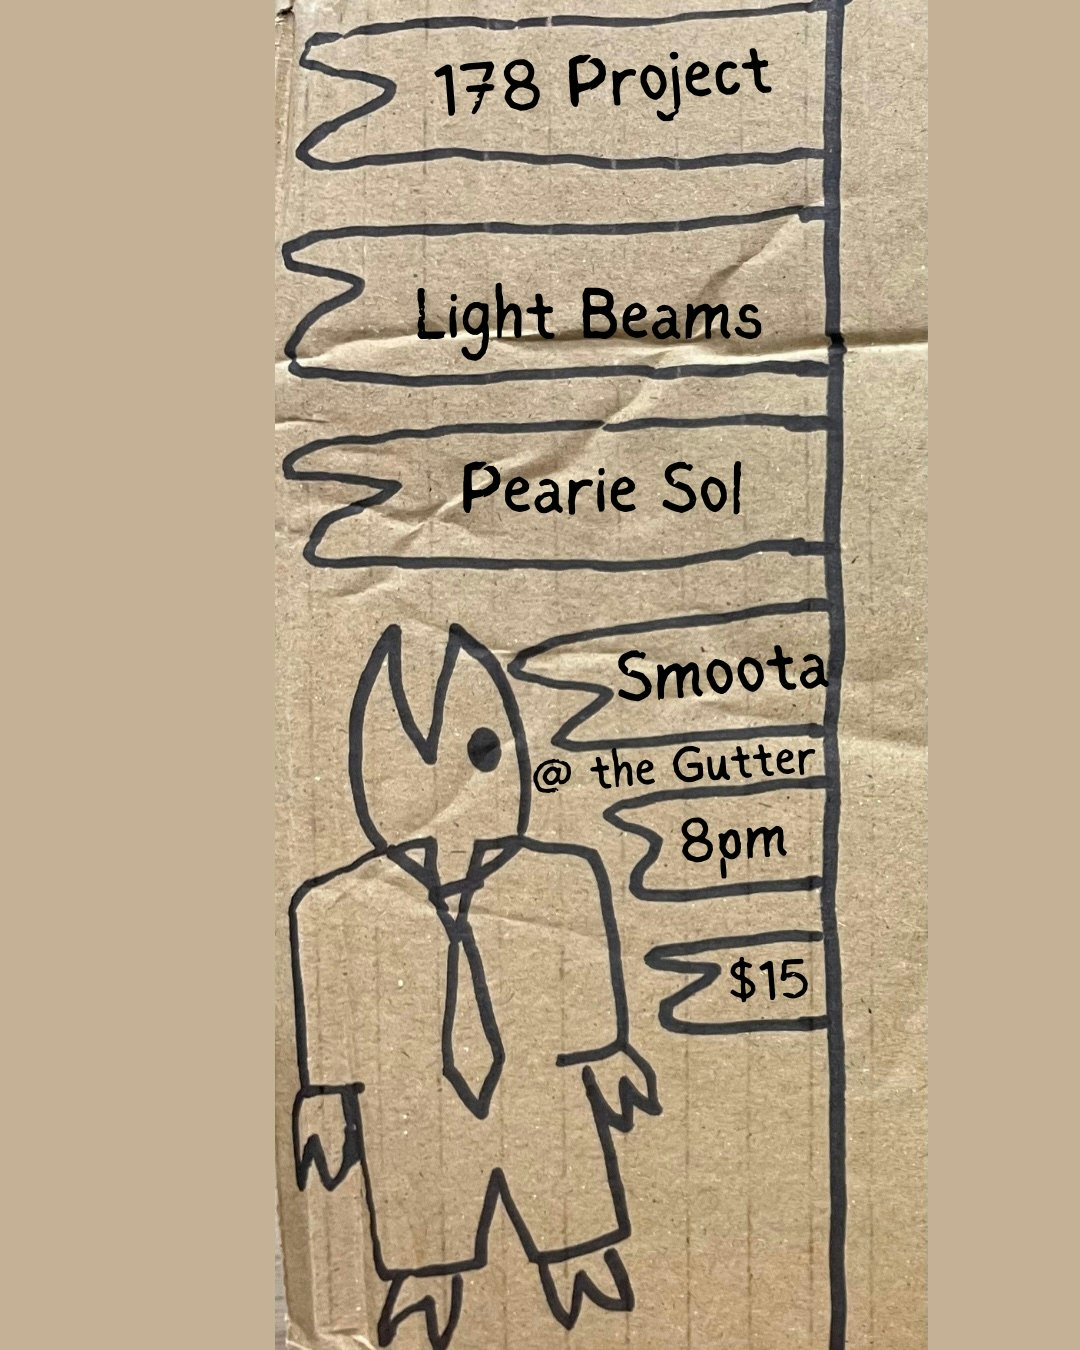 178 Project
Light Beams
Pearie Sol
Smoota
@ the Gutter
8pm
$15